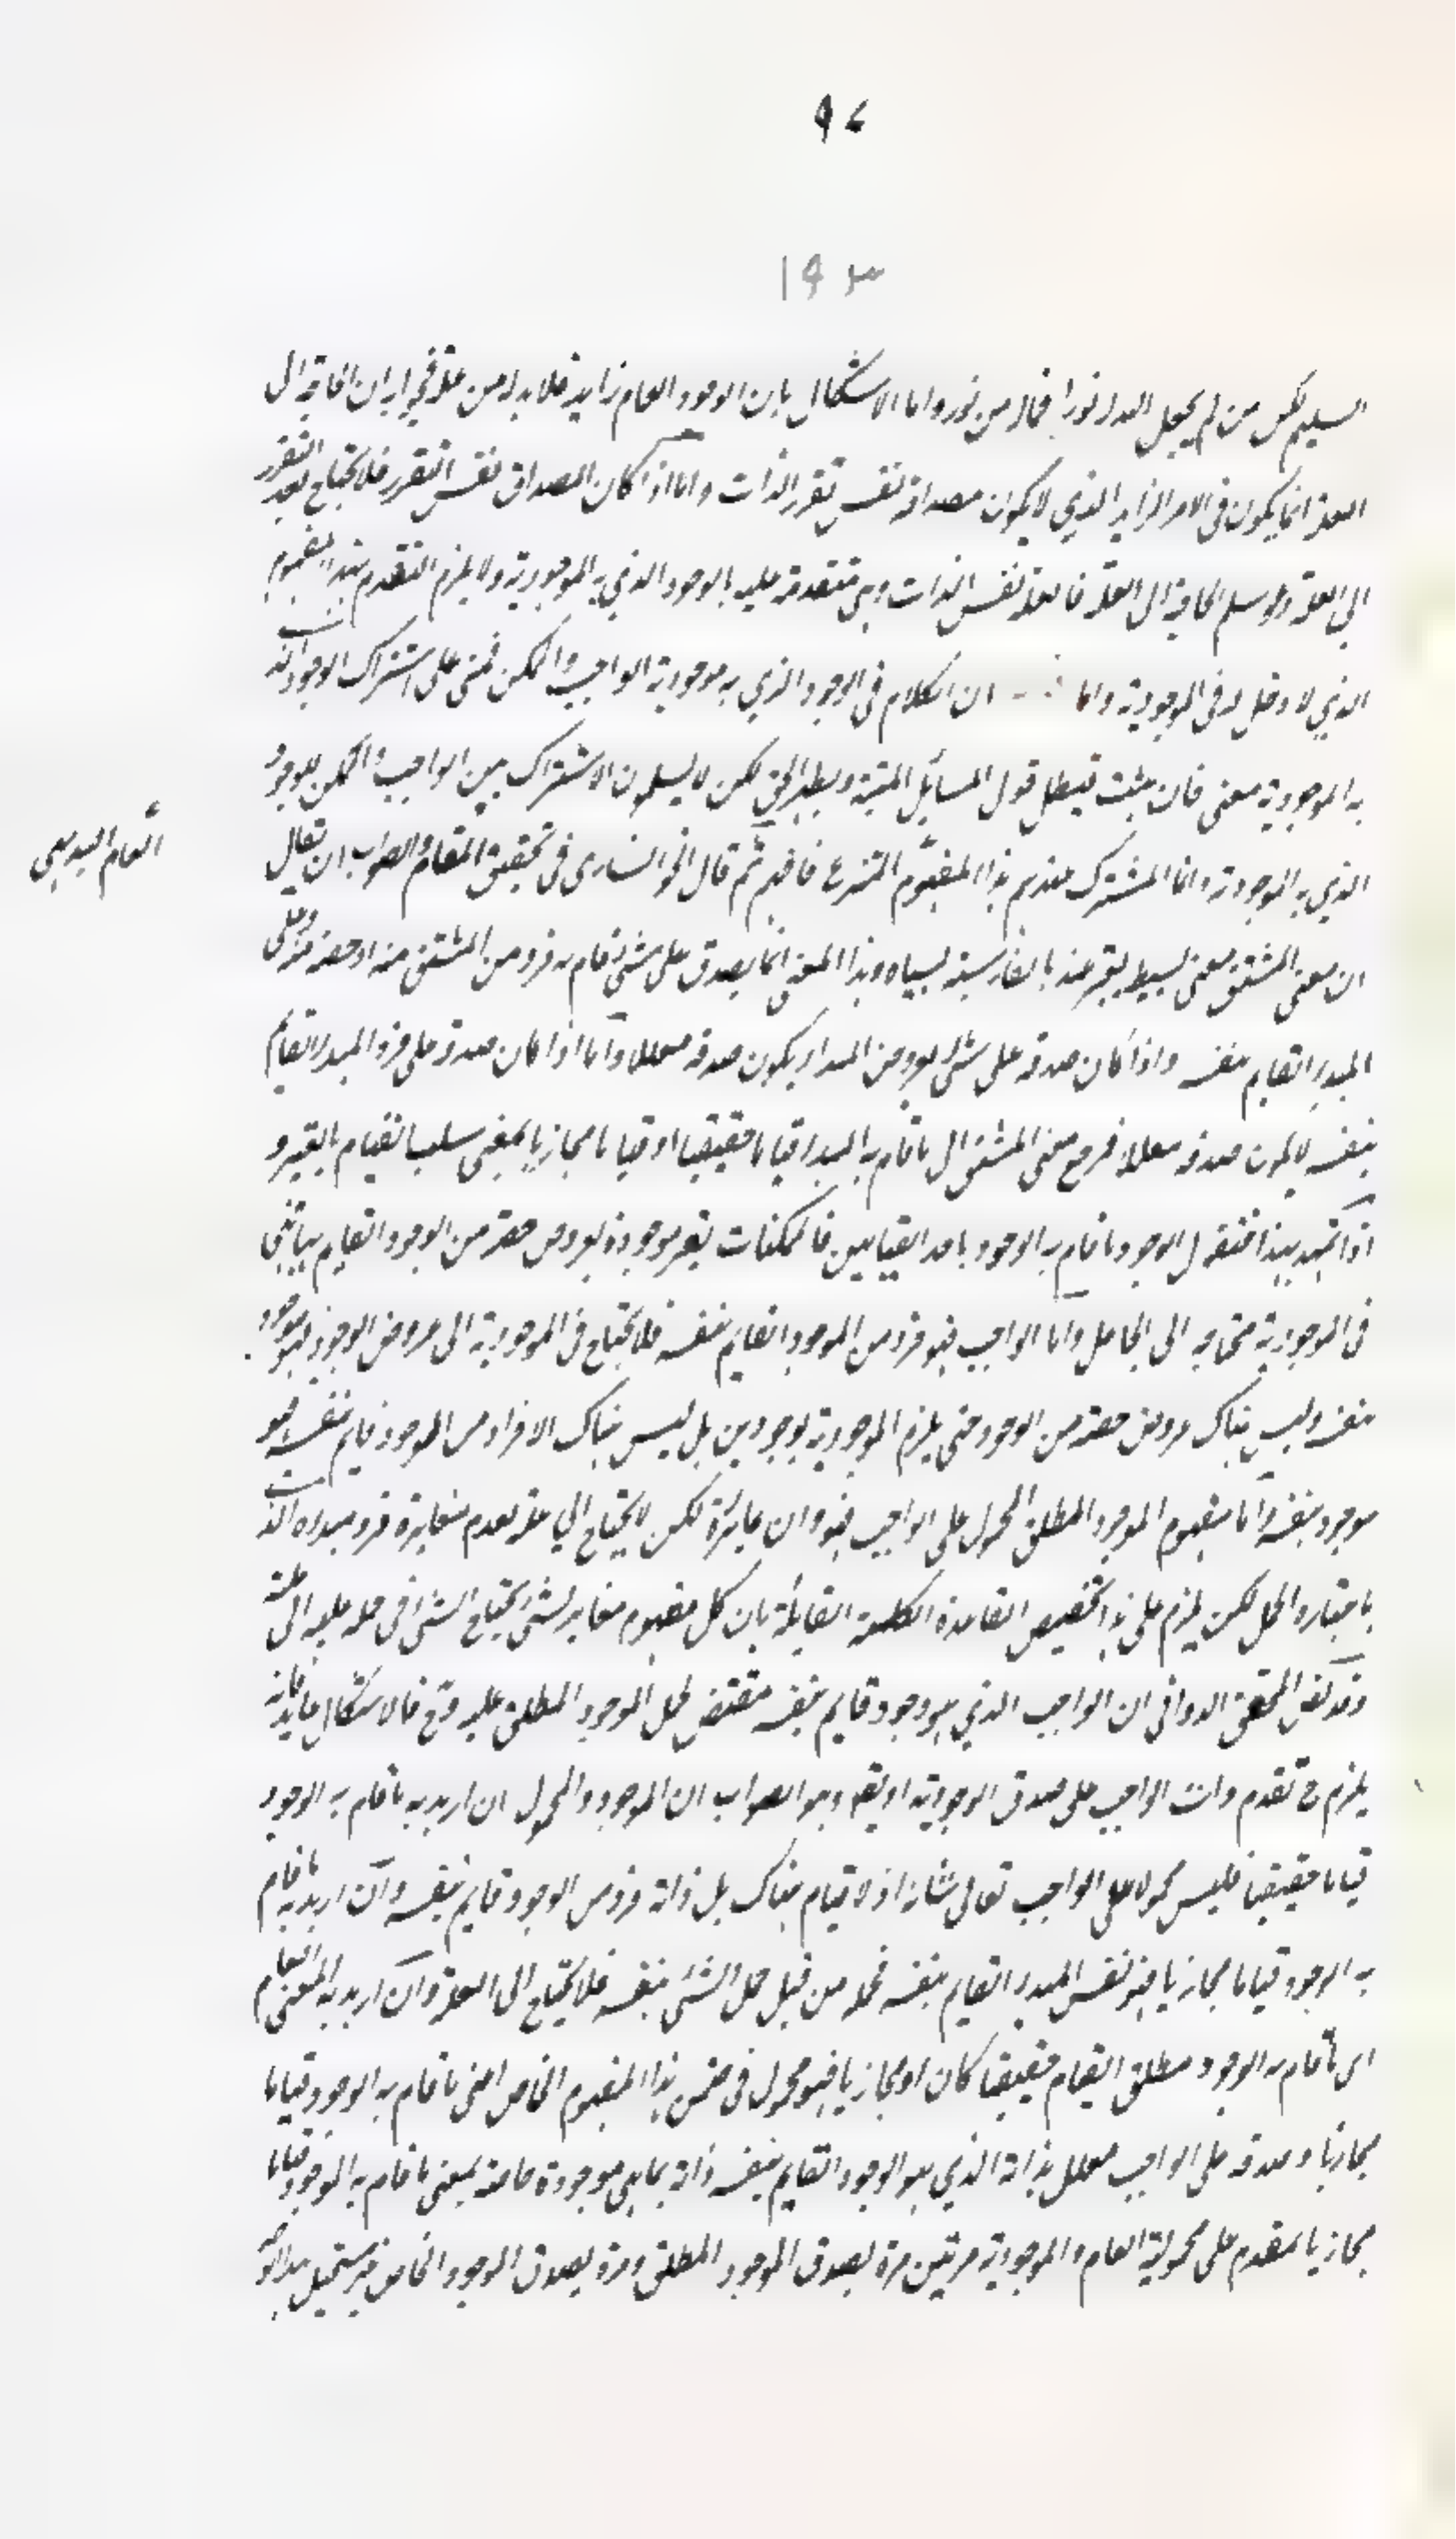 ٩٧
١٩٣
السليم لكن من لم يجعل الله له نورا فما له من نور واما الاشكال بان الوجود العام زايد فلا بد له من علة ففيه ان الحاجة الى
العلة انما يكون في الامر الزايد الذي لا يكون مصداقه نفس تقرر الذات واما اذا كان المصداق نفس التقرر فلا يحتاج بعد التقرر
الى العلة ولو سلم الحاجة الى العلة فالعلة نفس الذات وهي متقدمة عليه بالوجود الذي به الموجودية ولا يلزم التقدم بهذا المفهوم
الذي لا دخل له في الموجودية واما ان الكلام في الوجود الذي به موجودية الواجب والممكن فمبني على اشتراك الوجود الذي
به الموجودية معنى فان يثبت فيبطل قول المسائل المبنية ويظهر الحق لكن لا يسلمون الاشتراك بين الواجب والممكن بالوجود
الذي به الموجودية وانما المشترك عندهم هذا المفهوم المنتزع فافهم ثم قال الخوانساري في تحقيق المقام والصواب ان يقال
ان معنى المشتق معنى بسيط يعبر عنه بالفارسية بسياه وهذا المعنى انما يصدق على شيئ قام به فرد من المشتق منه او حصة منه وعلى
المبدء القايم بنفسه واذا كان صدقه على شيئ لعروض المبدء يكون صدقه معللا واما اذا كان صدقه على فرد المبدء القايم
بنفسه لا يكون صدقه معللا فرجع معنى المشتق الى ما قام به المبدء قياما حقيقيا او قياما مجازيا بمعنى سلب القيام بالغير و
اذا تمهد هذا فنقول الوجود ما قام به الوجود باحد القيامين فالممكنات يصير موجودة بعروض حصة من الوجود القايم بها فهي
في الموجودية محتاجة الى الجاعل واما الواجب فهو فرد من الموجود القايم بنفسه فلا يحتاج في الموجودية الى عروض الوجود فهو موجود
بنفسه وليس هناك عروض حصة من الوجود حتى يلزم الموجودية بوجودين بل ليس هناك الا فرد من الموجود قايم بنفسه فهو
موجود بنفسه واما مفهوم الموجود المطلق المحمول على الواجب فهو وان غايره لكن لا يحتاج الى علة لعدم مغايرة فرد مبدءه الذي
باعتباره الحمل لكن يلزم على هذا تخصيص القاعدة الكلية القايلة بان كل مفهوم مغاير لشيئ يحتاج الشيئ في حمله عليه الى علة
وقد المحقق الدواني ان الواجب الذي هو وجود قايم بنفسه مقتض لحمل الموجود المطلق عليه وح فالاشكال عايد فانه
يلزم ح تقدم ذات الواجب على صدق الموجودية وهو الصواب ان الموجود والمحمول ان اريد به ما قام به الوجود
قياما حقيقيا فليس محمولا على الواجب تعالى شانه اذ لا قيام هناك بل ذاته فرد من الوجود قايم بنفسه وان اريد به ما قام
به الوجود قياما مجازيا فهو نفس المبدء القايم بنفسه فحمله من قبيل حمل الشيئ بنفسه فلا يحتاج الى العلة وان اريد به المعنى العام
اى ما قام به الوجود مطلق القيام حقيقيا كان او مجازيا فهو محمول في ضمن هذا المفهوم الخاص اعني ما قام به الوجود قياما
مجازيا وصدقه على الواجب معلل بذاته الذي هو الوجود القايم بنفسه ذاته بما هى موجودة خاصة بمعنى ما قام به الوجود قياما
مجازيا متقدم على محمولية العام والموجودية مرتين مرة بصدق الموجود المطلق ومرة بصدق الموجود الخاص غير مستحيل
العام اليه